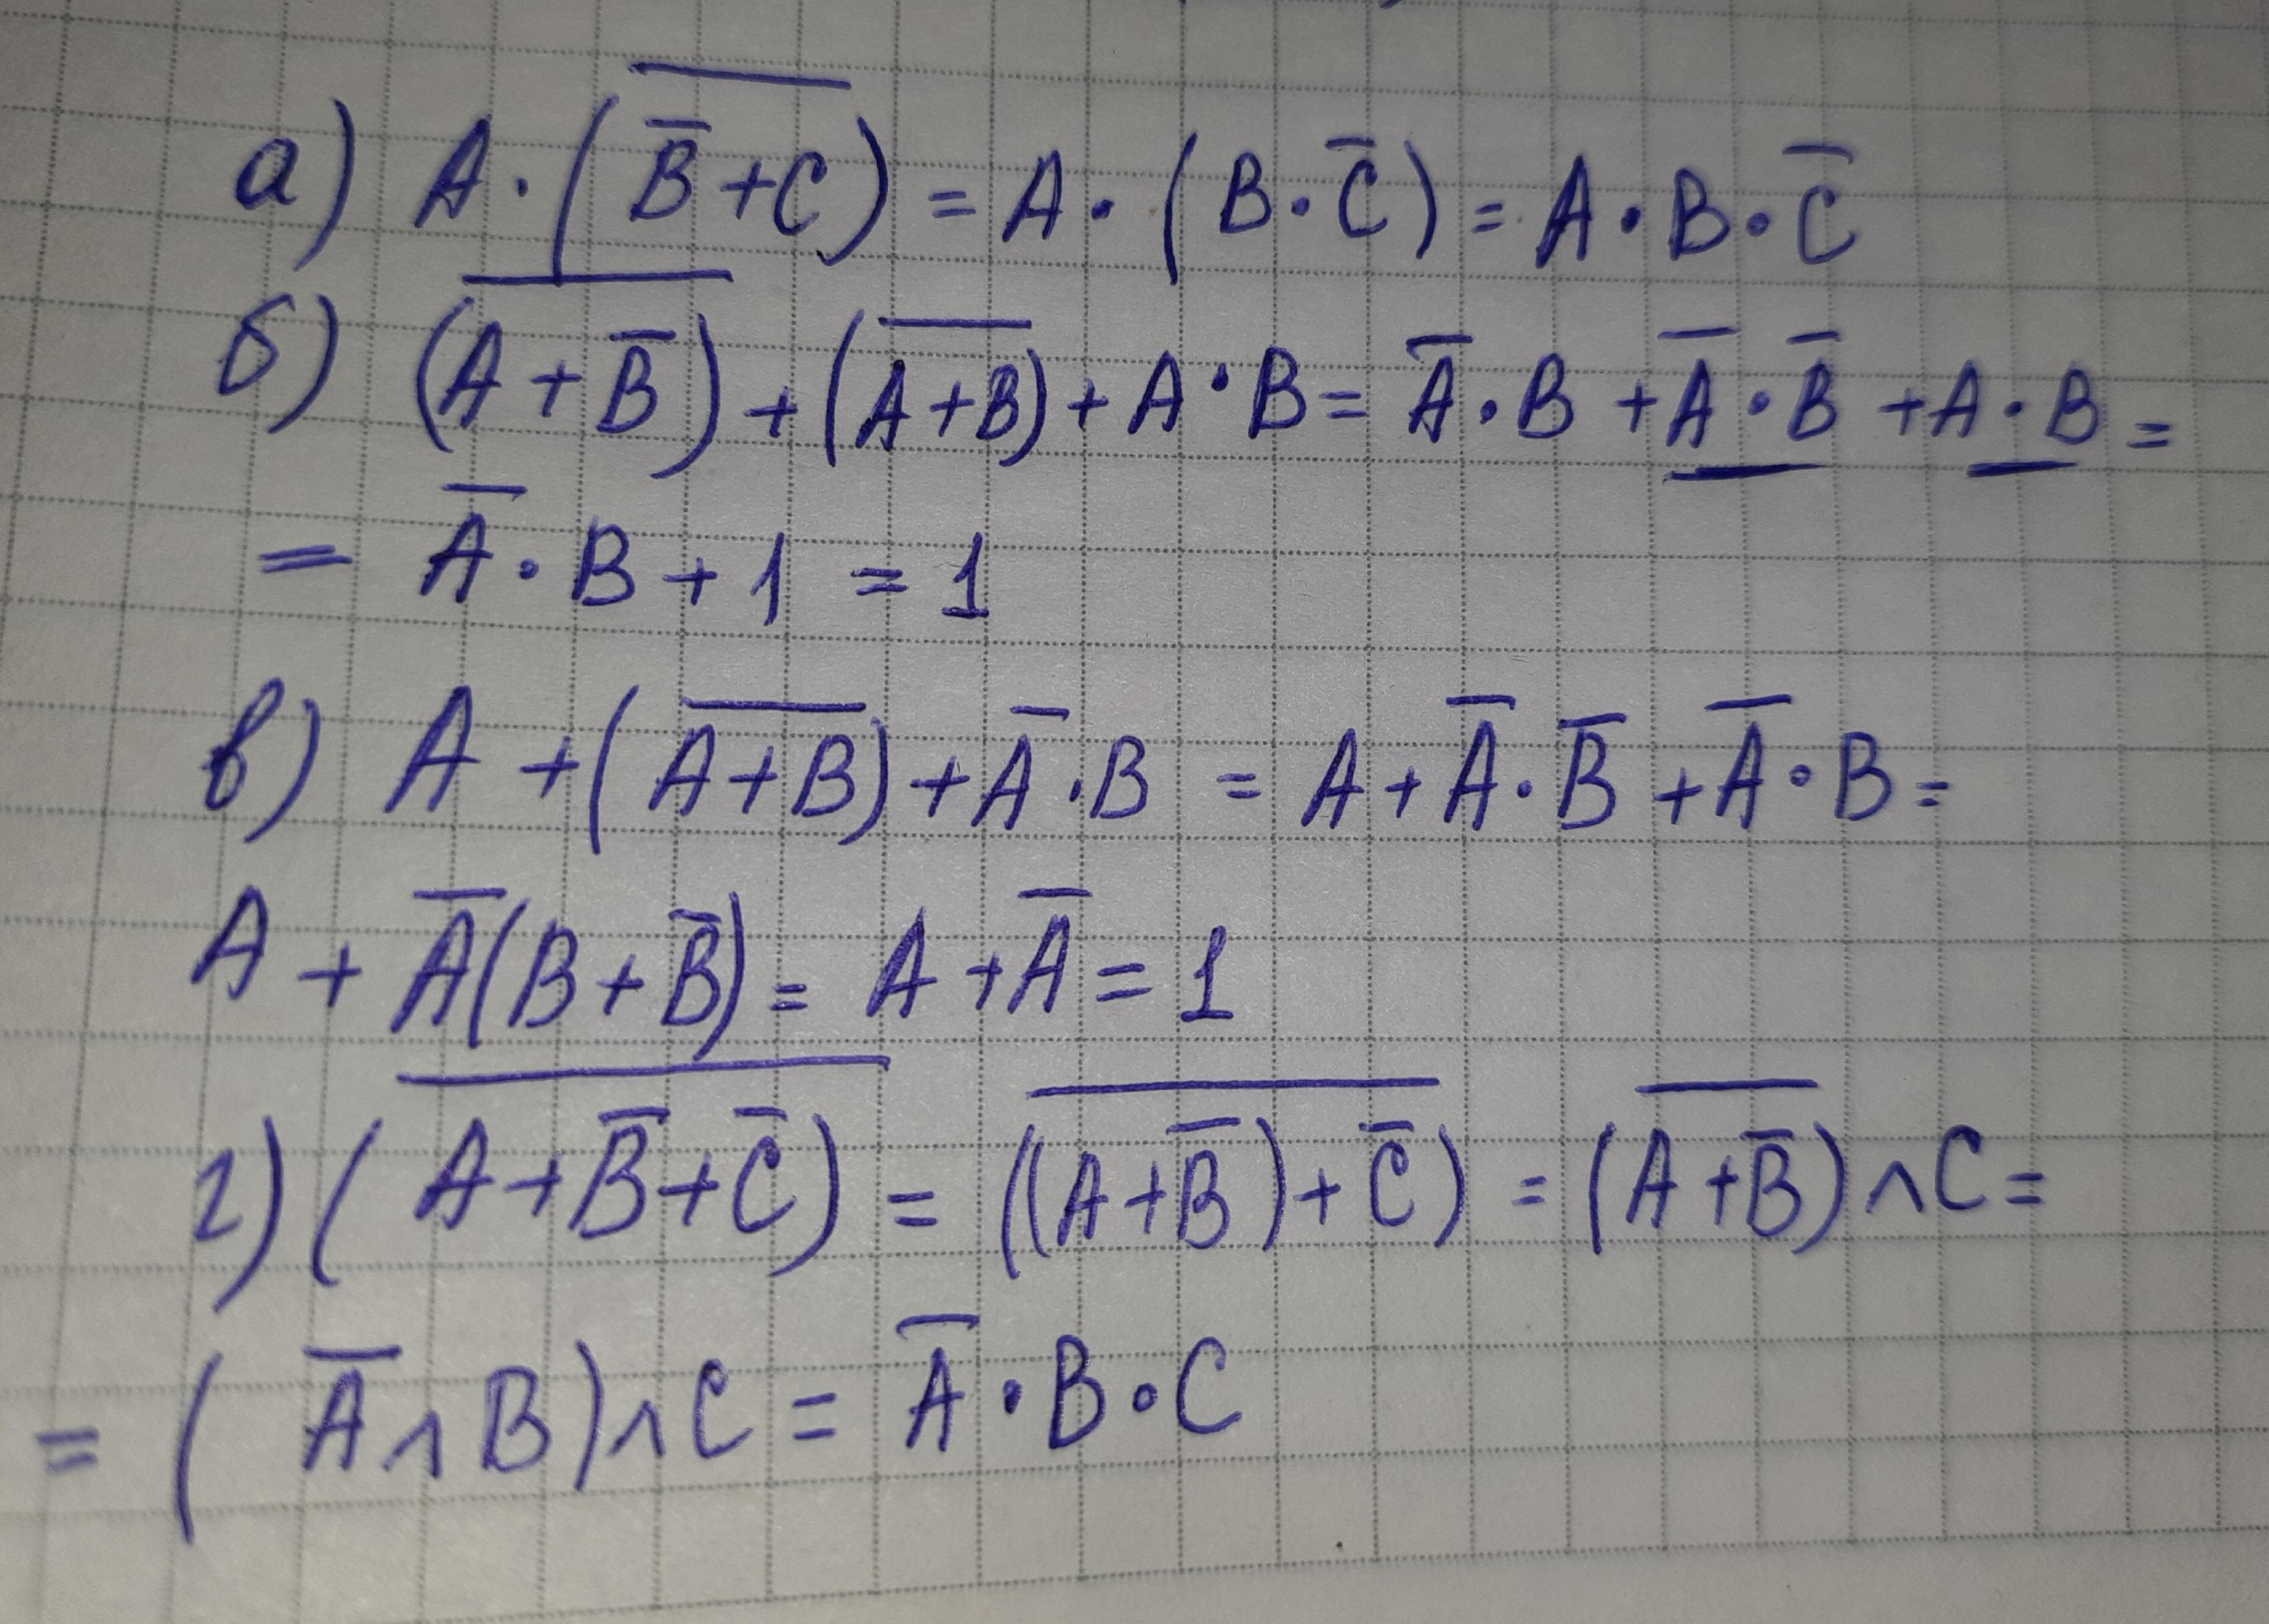 а) A · (\overline{\overline{B} + C}) = A · (B · \overline{C}) = A · B · \overline{C}
б) (\overline{A + \overline{B}}) + (\overline{A + B}) + A · B = \overline{A} · B + \overline{A} · \overline{B} + A · B =
= \overline{A} · B + 1 = 1
в) A + (\overline{A + B}) + \overline{A} · B = A + \overline{A} · \overline{B} + \overline{A} · B =
A + \overline{A}(B + \overline{B}) = A + \overline{A} = 1
г) (\overline{A + \overline{B} + \overline{C}}) = (\overline{(A + \overline{B}) + \overline{C}}) = (\overline{A + \overline{B}}) ∧ C =
= (\overline{A} ∧ B) ∧ C = \overline{A} · B · C